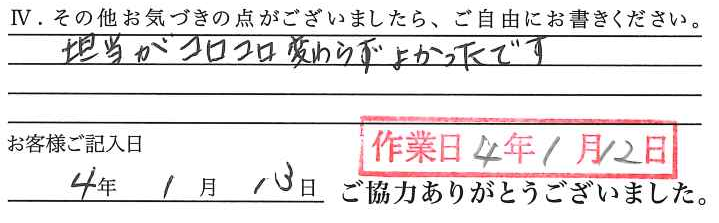 Ⅳ．その他お気づきの点がございましたら、ご自由にお書きください。
担当がコロコロ変わらずよかったです
お客様ご記入日
作業日4年1月12日
4年 1月 13日
ご協力ありがとうございました。